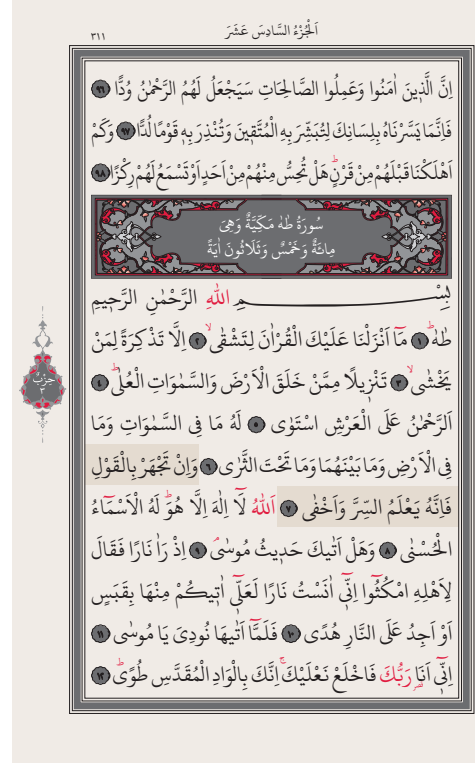 اَلْجُزْءُ السَّادِسَ عَشَرَ
٣١١
اِنَّ الَّذ۪ينَ اٰمَنُوا وَعَمِلُوا الصَّالِحَاتِ سَيَجْعَلُ لَهُمُ الرَّحْمٰنُ وُدًّا ﴿٩٦﴾
فَاِنَّمَا يَسَّرْنَاهُ بِلِسَانِكَ لِتُبَشِّرَ بِهِ الْمُتَّق۪ينَ وَتُنْذِرَ بِه۪ قَوْمًا لُدًّا ﴿٩٧﴾ وَكَمْ
اَهْلَكْنَا قَبْلَهُمْ مِنْ قَرْنٍۜ هَلْ تُحِسُّ مِنْهُمْ مِنْ اَحَدٍ اَوْ تَسْمَعُ لَهُمْ رِكْزًا ﴿٩٨﴾
سُورَةُ طٰهٰ مَكِّيَّةٌ وَهِىَ
مِائَةٌ وَخَمْسٌ وَثَلَاثُونَ اٰيَةً
بِسْمِ اللّٰهِ الرَّحْمٰنِ الرَّح۪يمِ
طٰهٰۜ ﴿١﴾ مَٓا اَنْزَلْنَا عَلَيْكَ الْقُرْاٰنَ لِتَشْقٰىۙ ﴿٢﴾ اِلَّا تَذْكِرَةً لِمَنْ
يَخْشٰىۙ ﴿٣﴾ تَنْز۪يلًا مِمَّنْ خَلَقَ الْاَرْضَ وَالسَّمٰوَاتِ الْعُلٰىۜ ﴿٤﴾
اَلرَّحْمٰنُ عَلَى الْعَرْشِ اسْتَوٰى ﴿٥﴾ لَهُ مَا فِى السَّمٰوَاتِ وَمَا
فِى الْاَرْضِ وَمَا بَيْنَهُمَا وَمَا تَحْتَ الثَّرٰى ﴿٦﴾ وَاِنْ تَجْهَرْ بِالْقَوْلِ
فَاِنَّهُ يَعْلَمُ السِّرَّ وَاَخْفٰى ﴿٧﴾ اَللّٰهُ لَٓا اِلٰهَ اِلَّا هُوَۜ لَهُ الْاَسْمَٓاءُ
الْحُسْنٰى ﴿٨﴾ وَهَلْ اَتٰيكَ حَد۪يثُ مُوسٰىۢ ﴿٩﴾ اِذْ رَاٰ نَارًا فَقَالَ
لِاَهْلِهِ امْكُثُٓوا اِنّ۪ٓى اٰنَسْتُ نَارًا لَعَلّ۪ٓى اٰت۪يكُمْ مِنْهَا بِقَبَسٍ
اَوْ اَجِدُ عَلَى النَّارِ هُدًى ﴿١٠﴾ فَلَمَّٓا اَتٰيهَا نُودِىَ يَا مُوسٰى ﴿١١﴾
اِنّ۪ٓى اَنَا۬ رَبُّكَ فَاخْلَعْ نَعْلَيْكَۚ اِنَّكَ بِالْوَادِ الْمُقَدَّسِ طُوًىۜ ﴿١٢﴾
حِزْبْ
٣